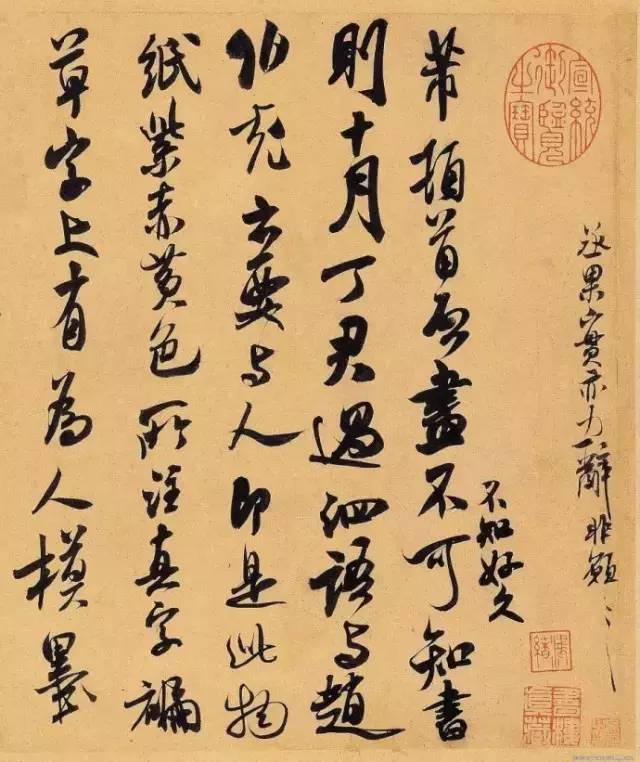 宣統御覽之寶
果實亦力辭非願
不知好久
芾頓首啓畫不可知書
則十月丁君過泗語与趙
伯充云要与人即是此物
紙紫赤黃色所注真字褊
草字上有為人模墨